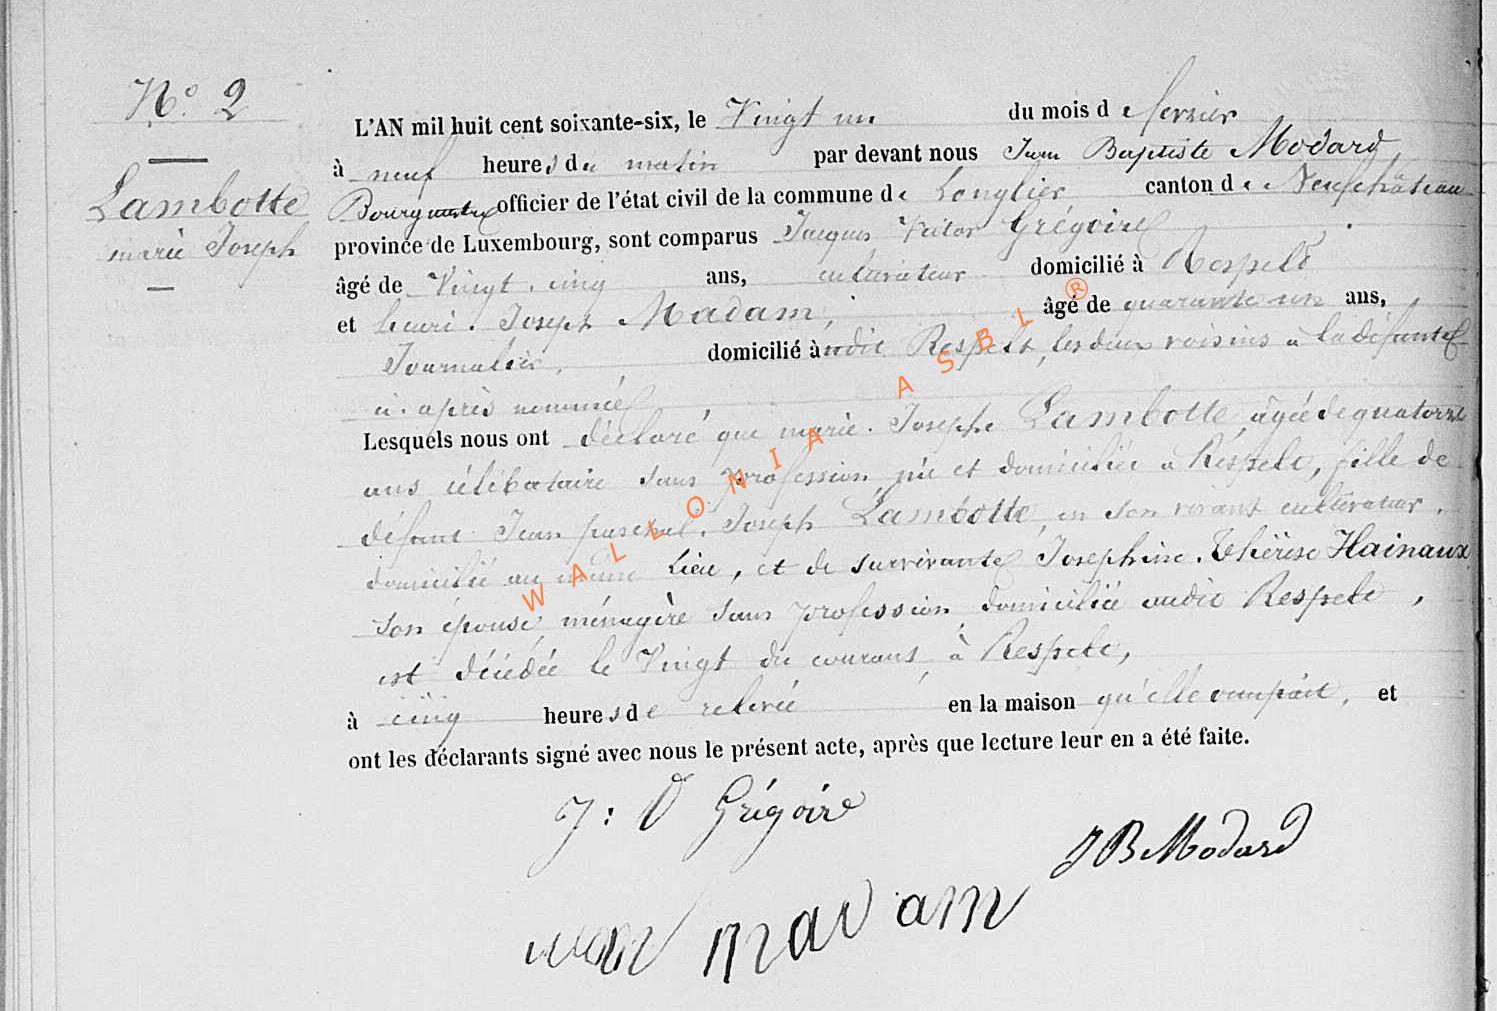 N.º 2
Lambotte
marie Joseph
L'AN mil huit cent soixante-six, le Vingt un du mois de fevrier
à neuf heures du matin par devant nous Jean Baptiste Modard,
Bourgmestre officier de l'état civil de la commune de Longlier canton de Neufchâteau
province de Luxembourg, sont comparus Jacques Victor Grégoire
âgé de Vingt. cinq ans, cultivateur domicilié à Respelt
et henri. Joseph Madam, âgé de quarante un ans,
Journalier, domicilié à udit Respelt, les deux voisins à la défunte
ci. après nommée
Lesquels nous ont déclaré que marie. Joseph Lambotte, âgée de quatorze
ans célibataire sans profession, née et domiciliée à Respelt, fille de
défunt Jean pascal. Joseph Lambotte, en son vivant cultivateur,
domicilié au même Lieu, et de survivante Josephine. Thérèse Hainaux
son épouse, ménagère sans profession, domiciliée audit Respelt,
est décédée le Vingt du courant, à Respelt,
à cinq heures de relevée en la maison qu'elle occupait, et
ont les déclarants signé avec nous le présent acte, après que lecture leur en a été faite.
J: V Grégoire
JB Modard
madam
WALLONIA ASBL ®